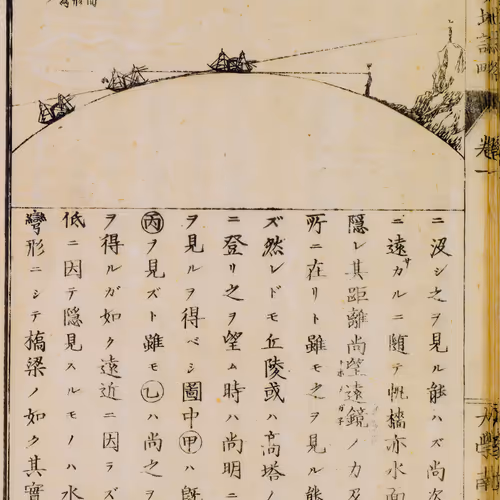 ニ没シ之ヲ見ル能ハズ尚次
ニ遠サカルニ随テ帆檣亦水面
隠レ其距離尚望遠鏡ノ力及
所ニ在リト雖モ之ヲ見ル能
ズ然レドモ丘陵或ハ高塔ノ
ニ登リ之ヲ望ム時ハ尚明ニ
ヲ見ルヲ得ベシ圖中甲ハ既
丙ヲ見ズト雖モ乙ハ尚之ヲ
ヲ得ルガ如ク遠近ニ因テズ
低ニ因テ隠見スルモノハ水
彎形ニシテ橋梁ノ如ク其實